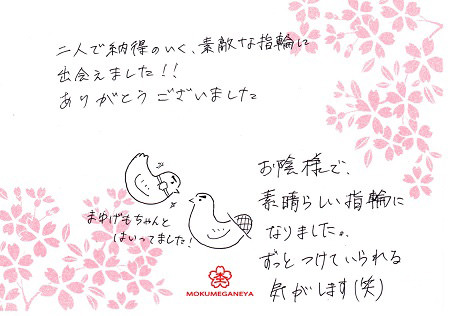 二人で納得のいく、素敵な指輪に
出会えました!!
ありがとうございました
まゆげもちゃんと
はいってました!
お陰様で、
素晴らしい指輪に
なりました。
ずっとつけていられる
気がします(笑)
MOKUMEGANEYA